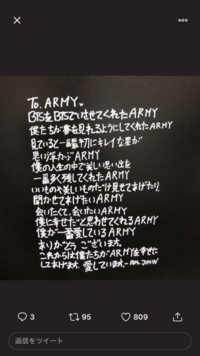 To. ARMY♥
BTSをBTSでいさせてくれたARMY
僕たちが夢を見れるようにしてくれたARMY
見ていると一番初にキレイな姿が
思い浮かぶARMY
僕の人生の中で美しい思い出を
一番多く残してくれたARMY
いいものや美しいものだけ見せてあげたり、
聞かせてあげたいARMY
会いたくて、会いたいARMY
僕に幸せだなと思わせてくれるARMY
僕が一番愛しているARMY
ありがとうございます。
これからは僕たちがARMYを幸せに
してあげます。愛しています。
3 95 809
返信をツイート